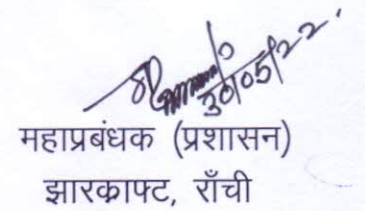 30/05/22.
महाप्रबंधक (प्रशासन)
झारक्राफ्ट, राँची